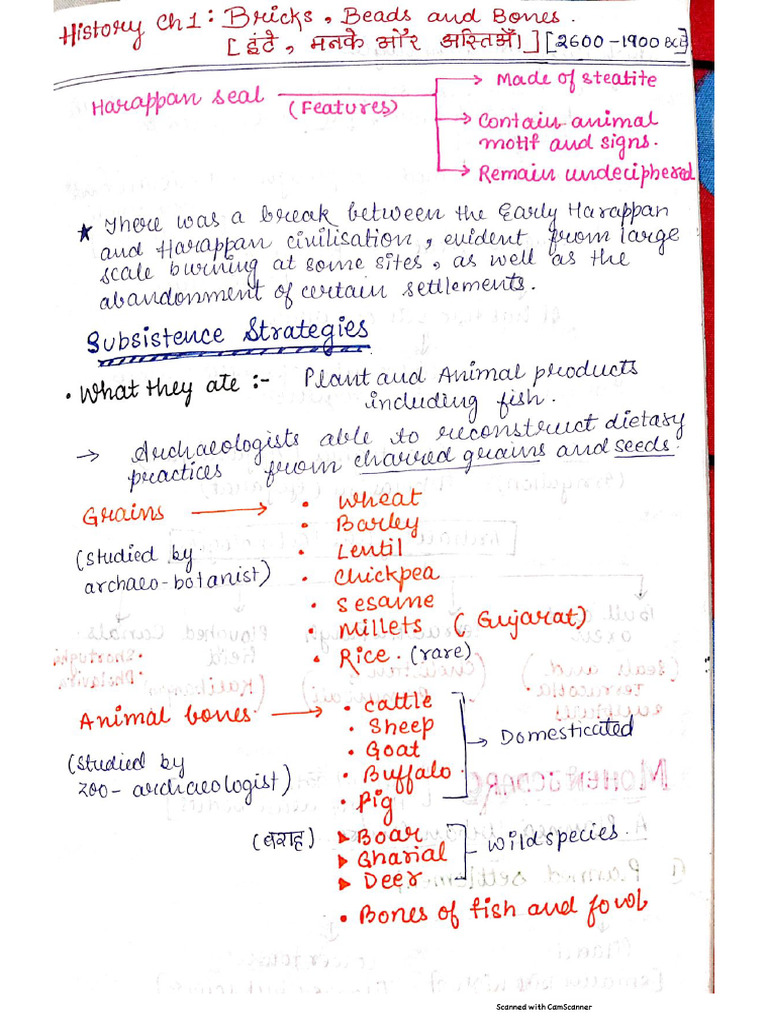 History Ch1: Bricks, Beads and Bones.
[इंटे, मनके और अस्तिआँ] [2600-1900 BCE]
Harappan seal (Features) → Made of steatite
→ Contain animal motif and signs.
→ Remain undeciphered
★ There was a break between the Early Harappan
and Harappan civilisation, evident from large
scale burning at some sites, as well as the
abandonment of certain settlements.
Subsistence Strategies
• What they ate :- Plant and Animal products
including fish.
→ Archaeologists able to reconstruct dietary
practices from charred grains and seeds.
Grains → • Wheat
• Barley
(Studied by archaeo-botanist)
• Lentil
• Chickpea
• Sesame
• Millets (Gujarat)
• Rice (rare)
Animal bones → • Cattle
• Sheep
• Goat
• Buffalo
• Pig
→ Domesticated
(Studied by
zoo-archaeologist)
(वराह) ➤ Boar
➤ Gharial
➤ Deer
Wild species.
• Bones of fish and fowl
Scanned with CamScanner